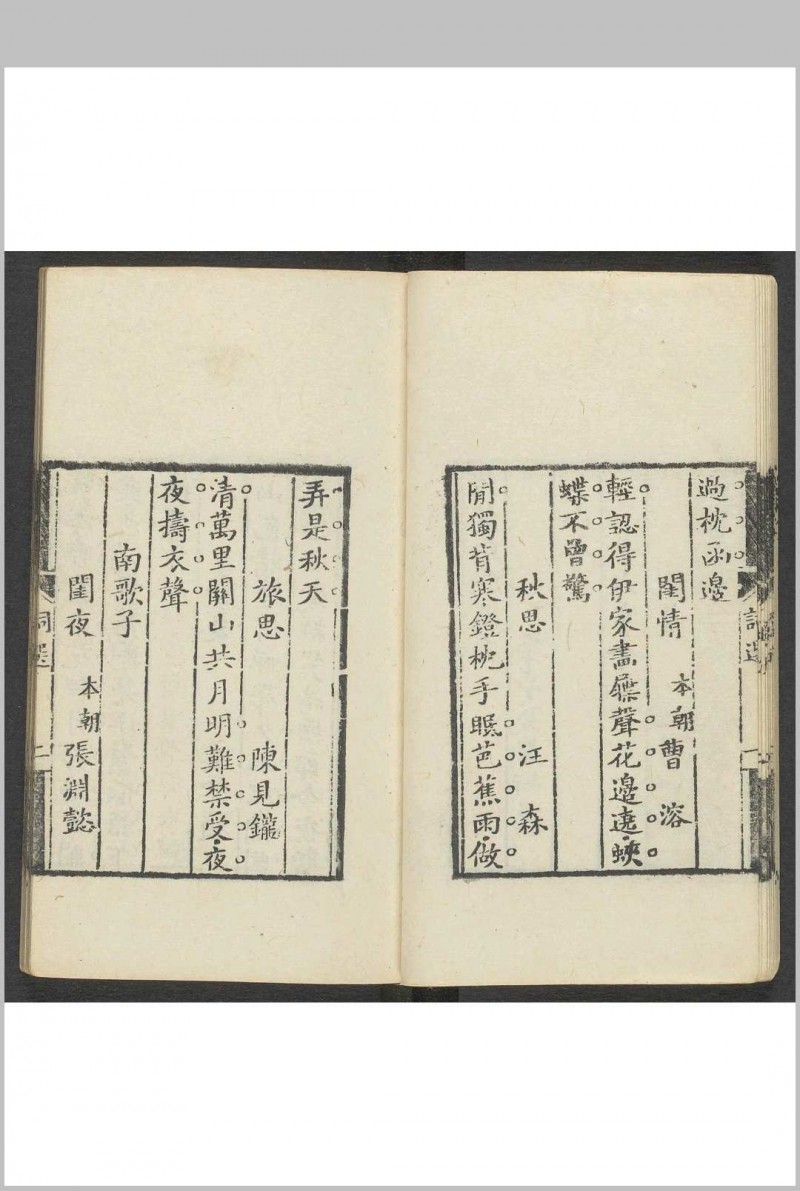 詞選 一
過枕函邊
閨情 本朝曹溶
輕認得伊家畵屧聲花邊遶蛺
蝶不曾驚
秋思 汪森
閒獨背寒鐙枕手眠芭蕉雨做
弄是秋天
旅思 陳見鑨
清萬里關山共月明難禁受夜
夜擣衣聲
南歌子
閨夜 本朝張淵懿
詞選 二